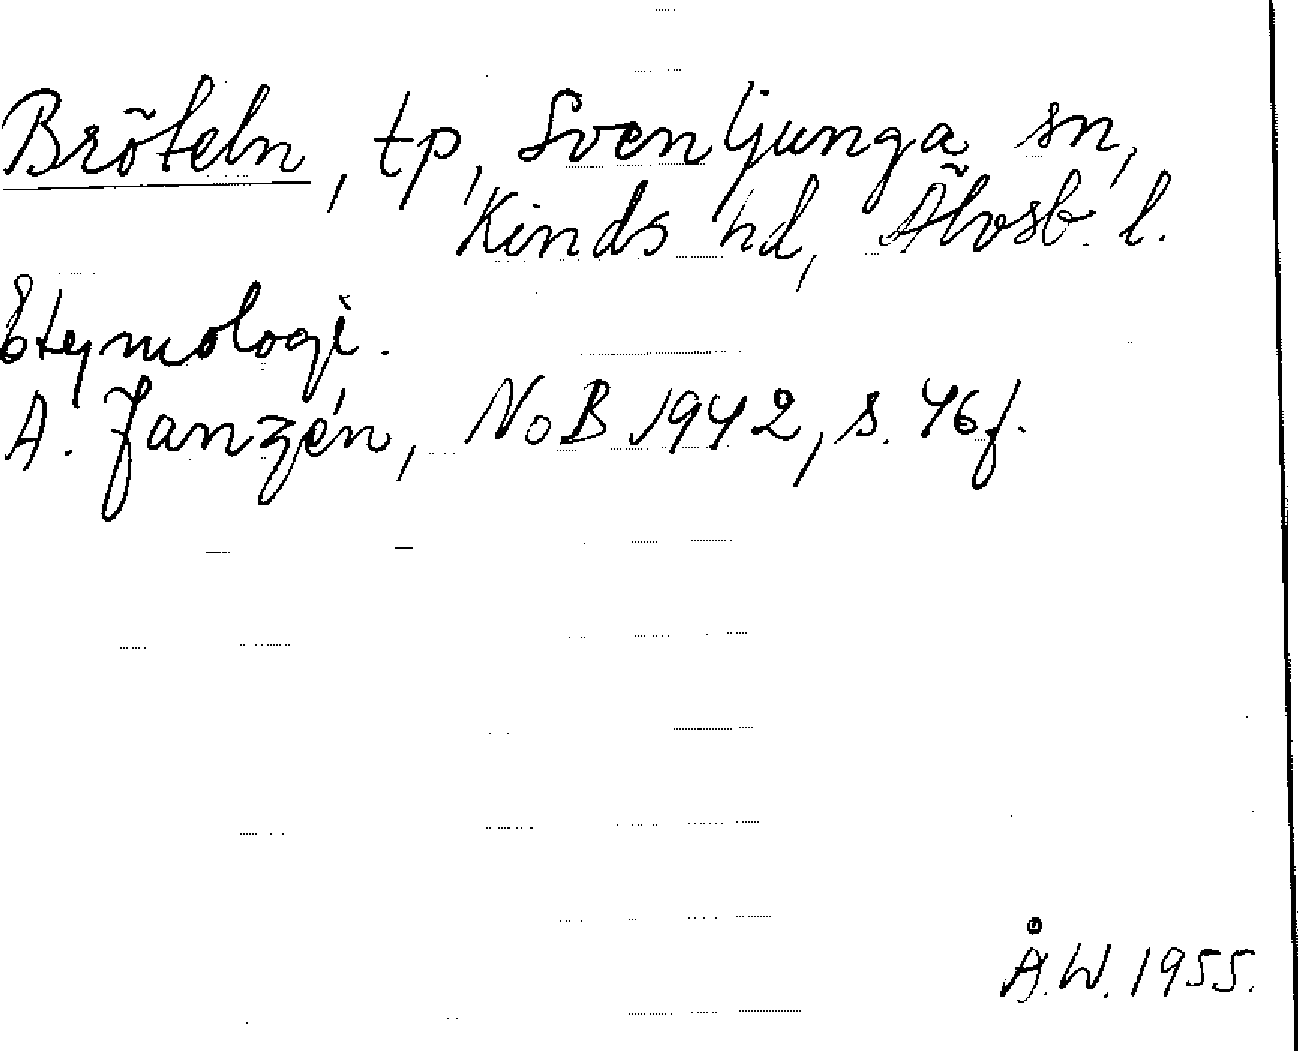 Bröteln, tp, Svenljunga sn,
Kinds hd, Älvsb. l.
Etymologi.
A. Janzén, NoB 1942, s. 46f.
Å.W. 1955.